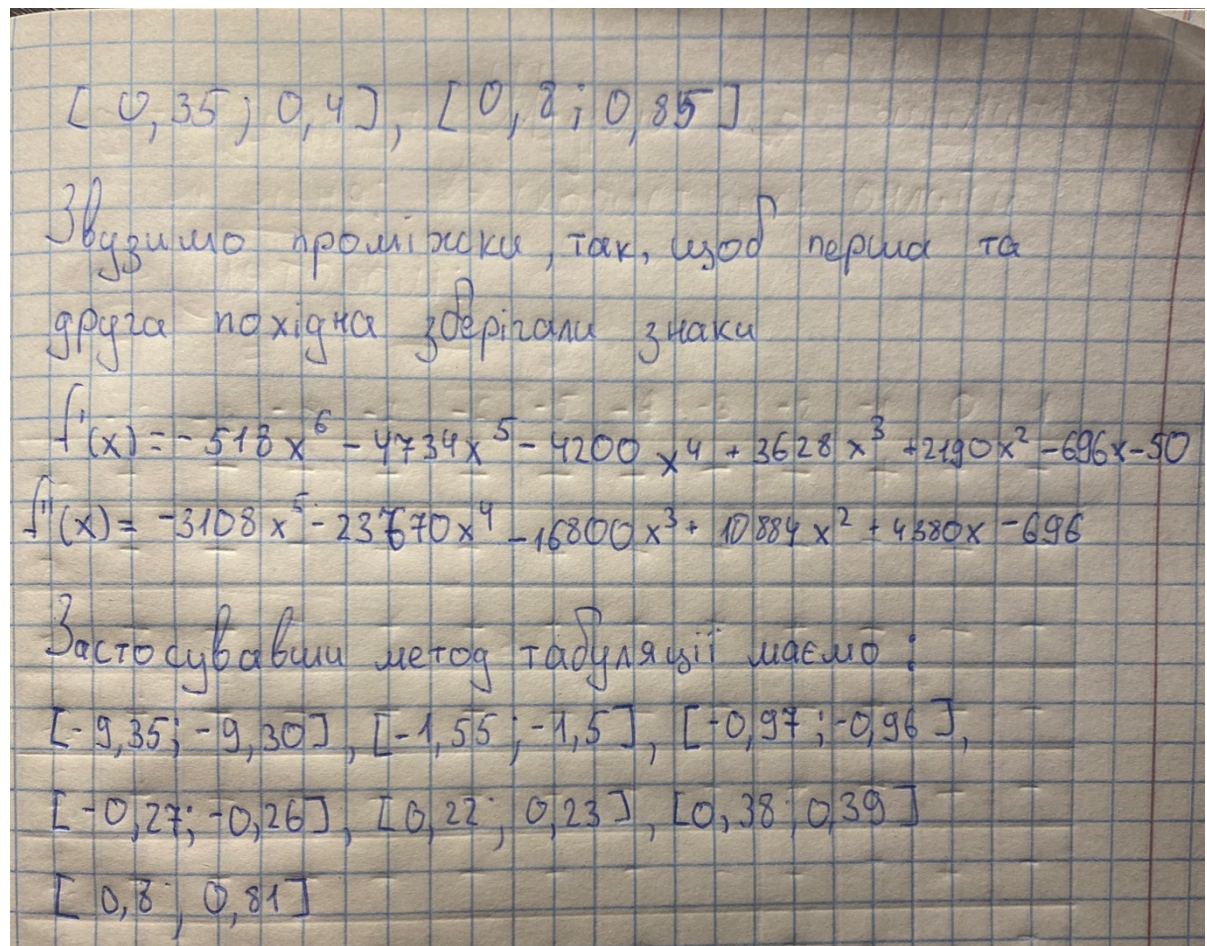 [ 0,35 ; 0,4 ] , [ 0,8 ; 0,85 ]
Звузимо проміжки, так, щоб перша та
друга похідна зберігали знаки
f'(x) = - 518x⁶ - 4734x⁵ - 4200x⁴ + 3628x³ + 2190x² - 696x - 50
f''(x) = -3108x⁵ - 23670x⁴ - 16800x³ + 10884x² + 4380x - 696
Застосувавши метод табуляції маємо :
[-9,35; -9,30], [-1,55 ; -1,5], [-0,97 ; -0,96],
[-0,27; -0,26], [0,22 ; 0,23], [0,38 ; 0,39]
[ 0,8 ; 0,81]